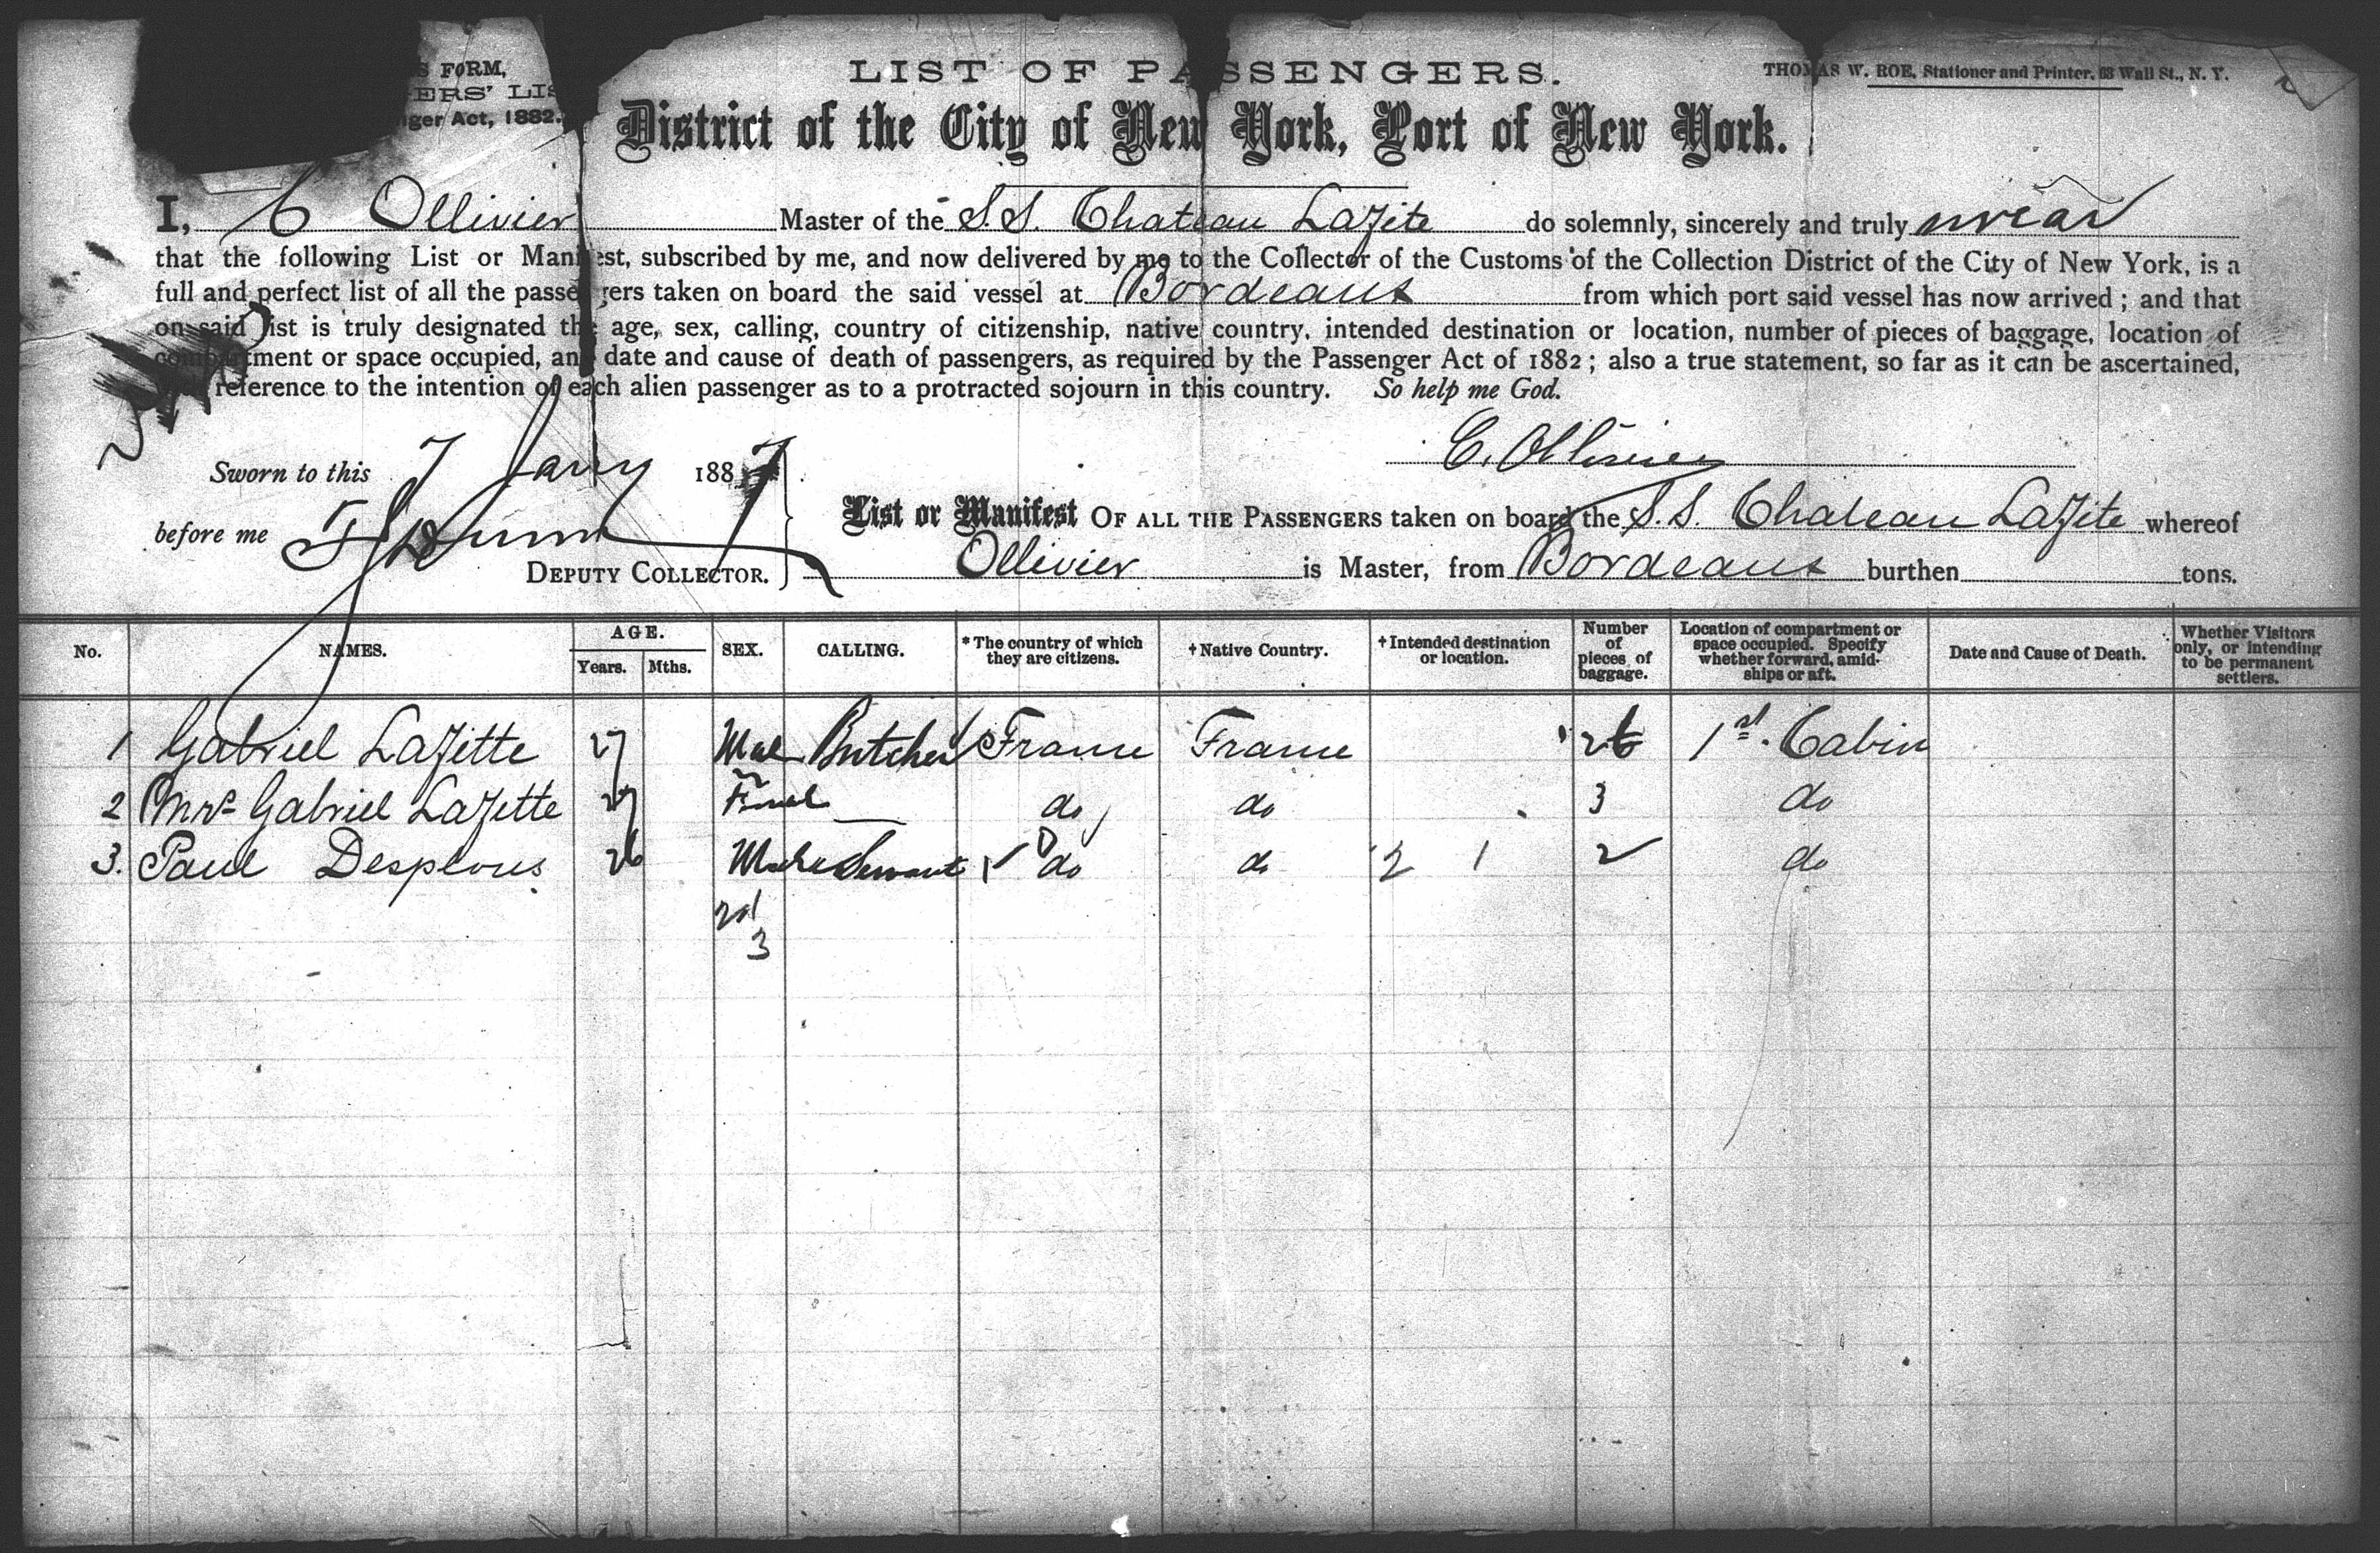 S FORM,
ERS' LIS
nger Act, 1882.
LIST OF PASSENGERS.
THOMAS W. ROE, Stationer and Printer, 63 Wall St., N. Y.
District of the City of New York, Port of New York.
I, C Ollivier Master of the S.S. Chateau Lafite do solemnly, sincerely and truly swear
that the following List or Manifest, subscribed by me, and now delivered by me to the Collector of the Customs of the Collection District of the City of New York, is a
full and perfect list of all the passengers taken on board the said vessel at Bordeaux from which port said vessel has now arrived ; and that
on said list is truly designated the age, sex, calling, country of citizenship, native country, intended destination or location, number of pieces of baggage, location of
compartment or space occupied, and date and cause of death of passengers, as required by the Passenger Act of 1882 ; also a true statement, so far as it can be ascertained,
reference to the intention of each alien passenger as to a protracted sojourn in this country. So help me God.
C. Ollivier
Sworn to this 7 Jany 1887
before me
DEPUTY COLLECTOR.
List or Manifest OF ALL THE PASSENGERS taken on board the S.S. Chateau Lafite whereof
Ollivier is Master, from Bordeaux burthen tons.
No. NAMES. AGE. Years. Mths. SEX. CALLING. * The country of which they are citizens. † Native Country. † Intended destination or location. Number of pieces of baggage. Location of compartment or space occupied. Specify whether forward, amid-ships or aft. Date and Cause of Death. Whether Visitors only, or intending to be permanent settlers.
1 Gabriel Lafitte 27 Mal Butcher France France 26 1st. Cabin
2 Mrs Gabriel Lafitte 27 Femal do do 3 do
3. Paul 26 Male Servant do do 2 1 2 do
2d 1
3